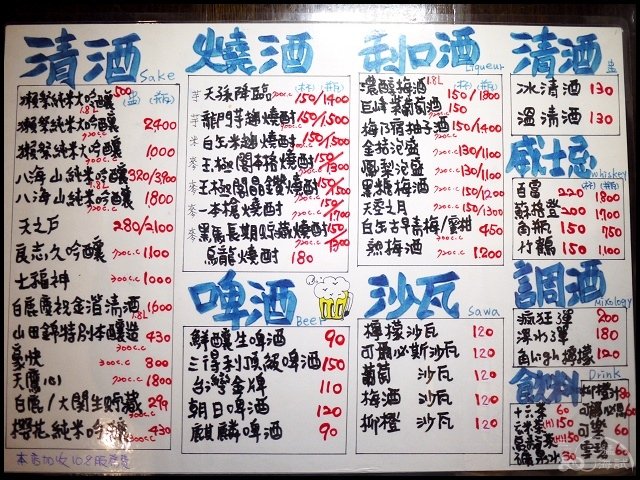 清酒 Sake
(盅) (瓶)
獺祭純米大吟釀 500
獺祭純米大吟釀 1.8L 2400
獺祭純米大吟釀 720c.c 1000
八海山純米吟釀 320/3900
八海山純米吟釀 720c.c 1800
天之戶 280/2100
良志久吟釀 720c.c 1000
七福神 300c.c 1000
白鹿慶祝金箔清酒 1.8L 1600
山田錦特別本釀造 300c.c 430
豪快 300c.c 800
天鷹心 720c.c 1800
白鹿/大關生貯藏 300c.c 299
櫻花純米吟釀 300c.c 430
本店加收10%服務費
燒酒
(杯) (瓶)
芋 天孫降臨 720c.c 150/1400
芋 龍門芋麴燒酎 150/1500
米 白岳米麴燒酎 720c.c 150/1500
麥 王極閣本格燒酎 150/1300
麥 王極閣晶鑽燒酎 150/1400
麥 一本槍燒酎 720c.c 150/1300
麥 黑馬長期貯藏燒酎 720c.c 150/1700
鳥龍燒酎 180
利口酒 Liqueur
(杯) (瓶)
濃醇梅酒 1.8L 150/1800
巨峰紫葡萄酒 150
梅乃宿柚子酒 720c.c 150/1400
金桔泡盛 720c.c 130/1100
鳳梨泡盛 720c.c 130/1100
黑糖梅酒 720c.c 150/1200
天空之月 720c.c 150/1300
白岳古早青梅/蜜柑 450
熱梅酒 1.200
清酒 盅
冰清酒 130
溫清酒 130
威士忌 Whiskey
(杯) (瓶)
百富 220 1800
蘇格登 200 1900
角瓶 150 750
竹鶴 150 1100
啤酒 Beer
鮮釀生啤酒 90
三得利頂級啤酒 150
台灣金牌 110
朝日啤酒 120
麒麟啤酒 90
沙瓦 Sawa
檸檬沙瓦 120
可爾必斯沙瓦 120
葡萄沙瓦 120
梅酒沙瓦 120
柳橙沙瓦 120
調酒 Mixology
瘋狂3彈 200
深水3彈 180
角high檸檬 120
飲料 Drink
柳橙汁 80
十六茶 60
可爾必思 60
玄米茶(H) 150
可樂 50
雪碧 50